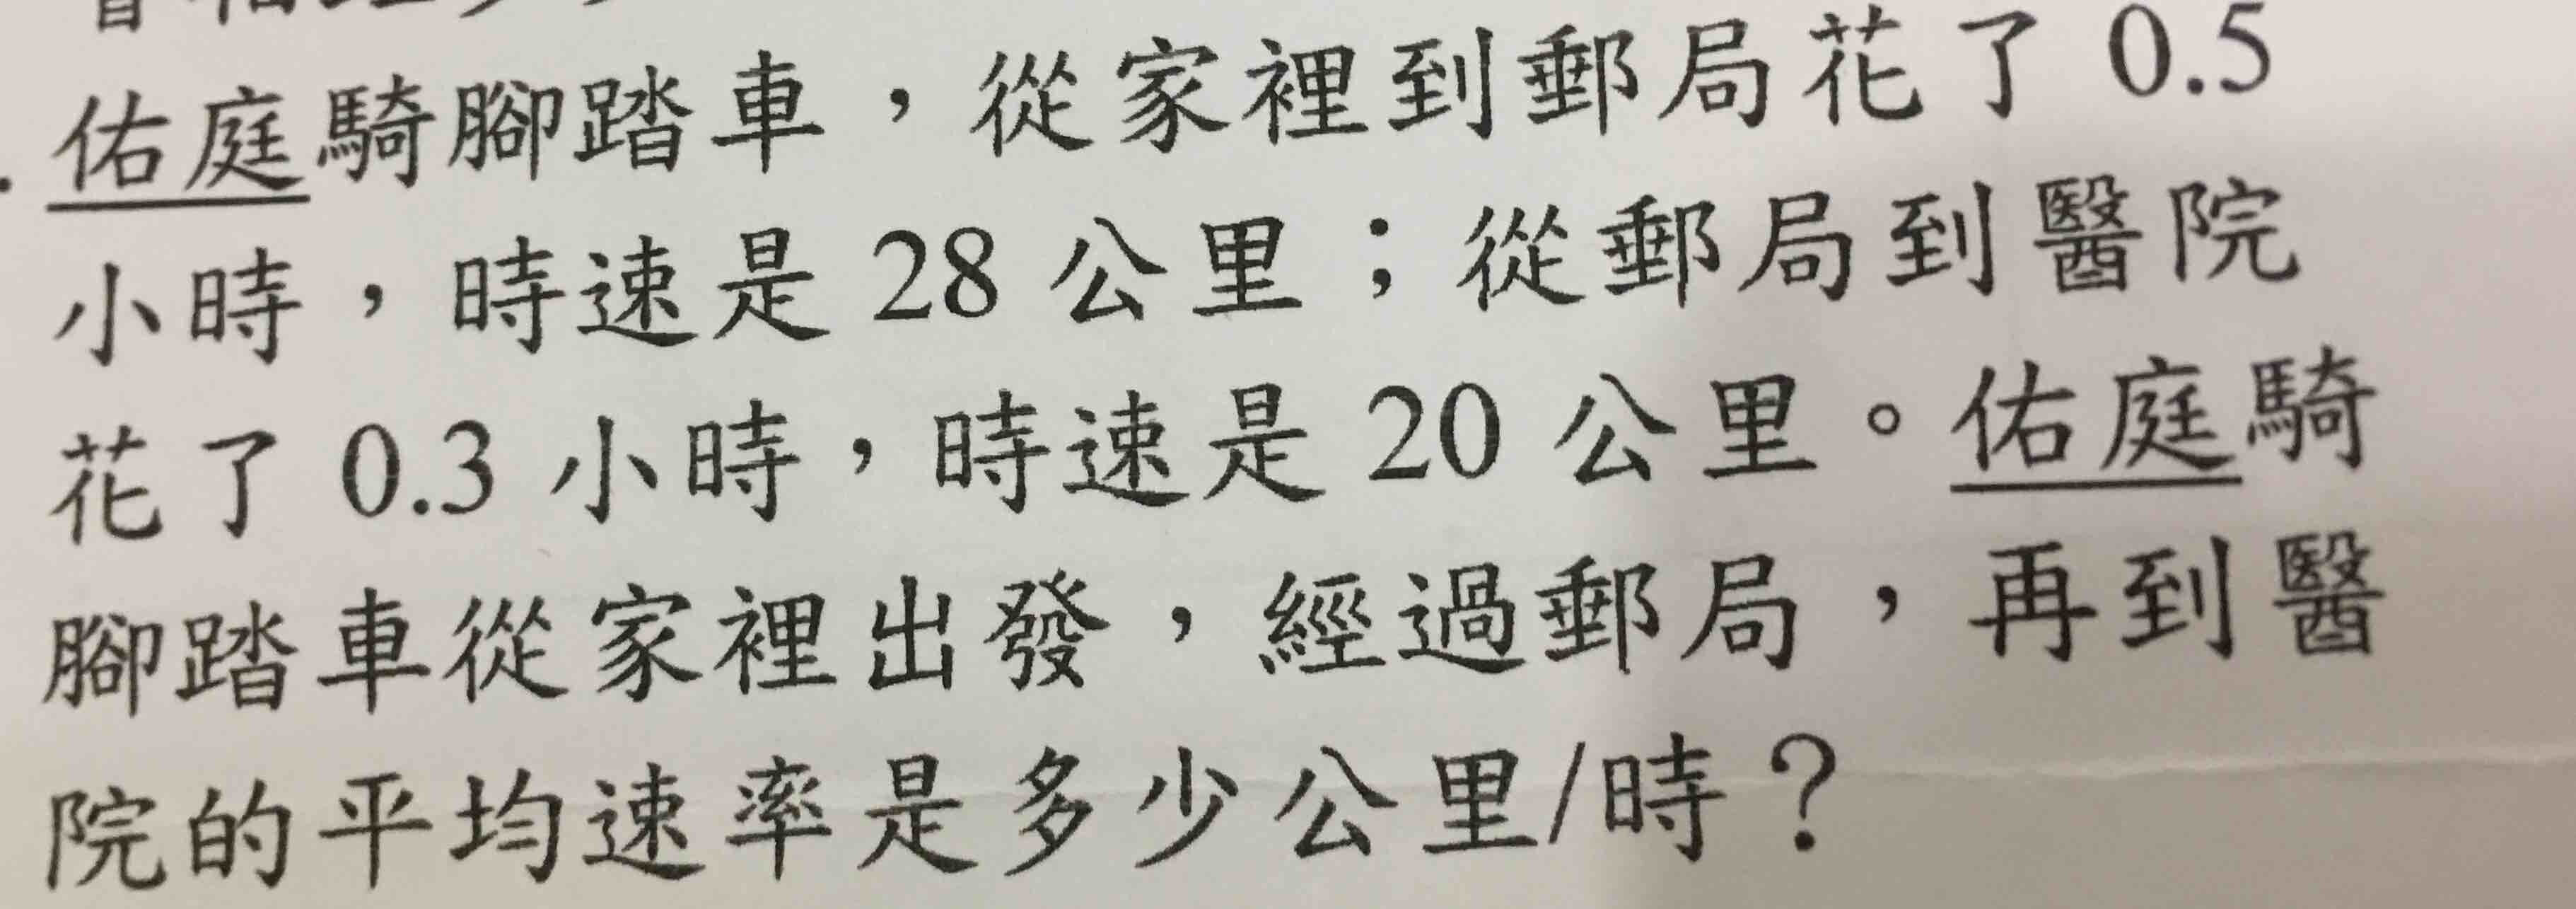 佑庭騎腳踏車，從家裡到郵局花了 0.5
小時，時速是 28 公里；從郵局到醫院
花了 0.3 小時，時速是 20 公里。佑庭騎
腳踏車從家裡出發，經過郵局，再到醫
院的平均速率是多少公里/時？